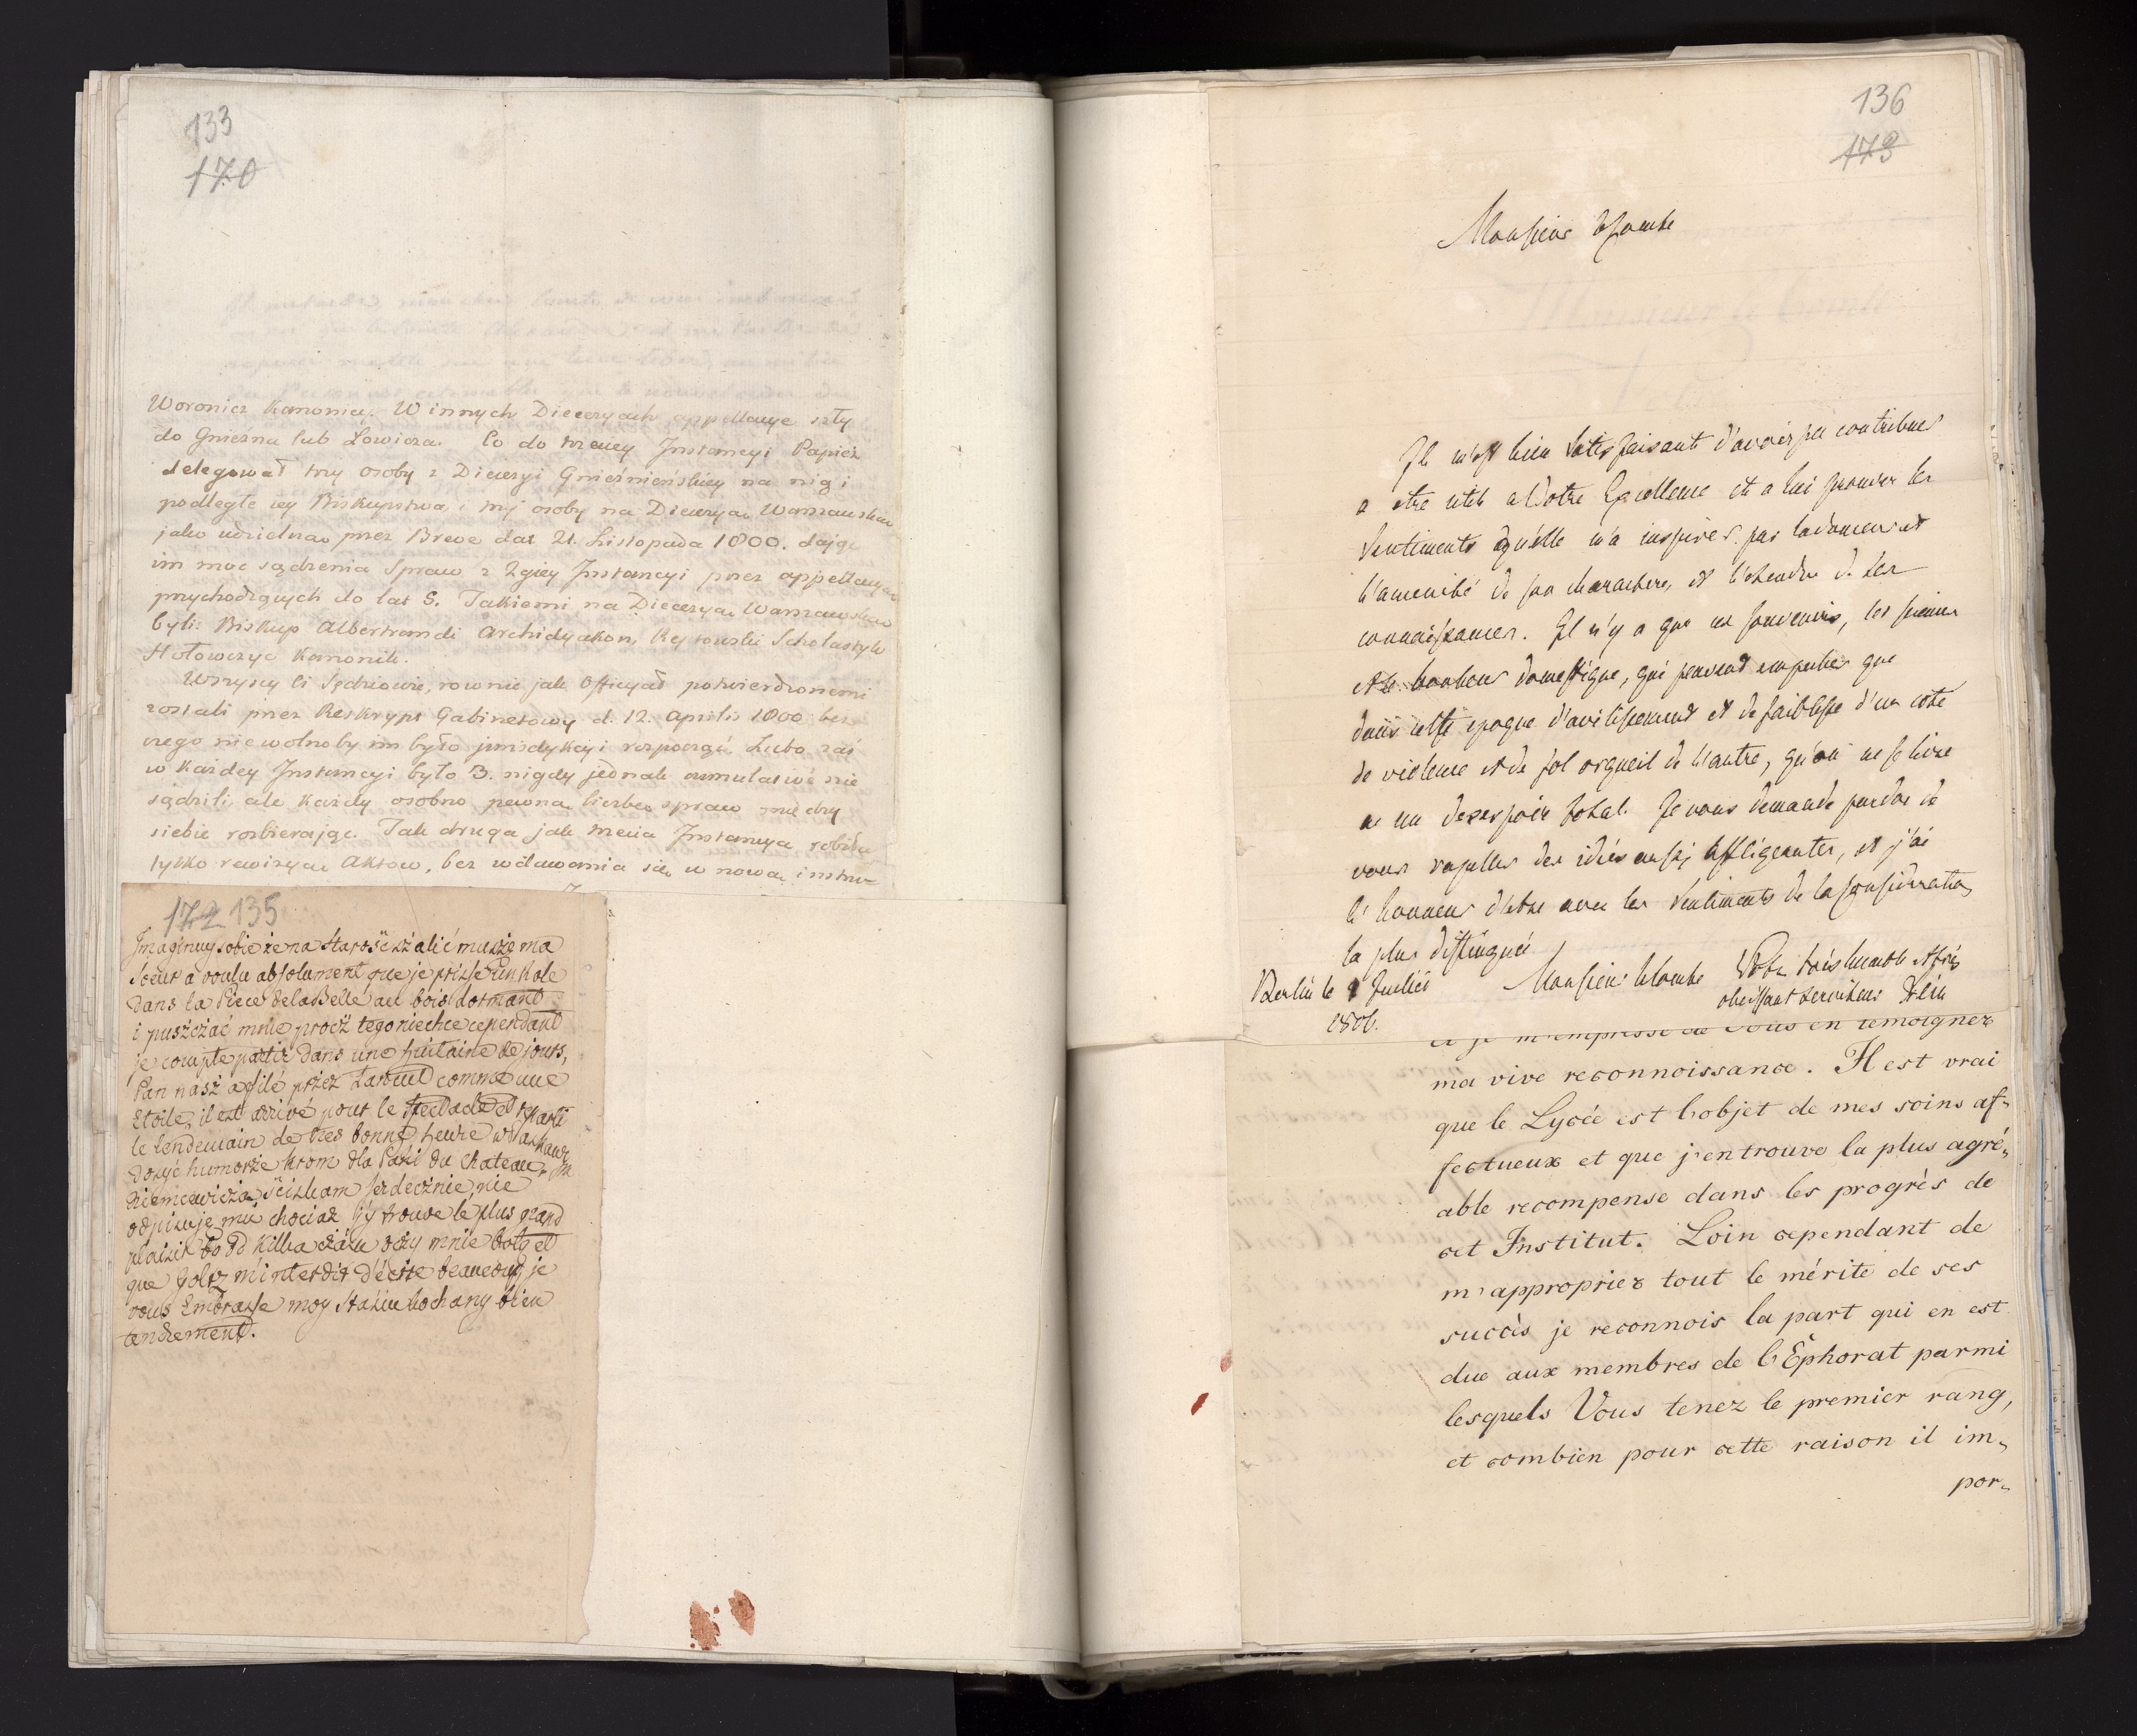 133
170
Woronicz Kanonicy. W innych Diecezyach appellacye szły
do Gniezna lub Łowicza. Co do trzeciey Instancyi Papież
delegował trzy osoby z Diecezyi Gnieźnieńskiey na nią i
podległe iey Biskupstwa, i trzy osoby na Diecezyą Warszawską
jako udzielną przez Breve dat 21. Listopada 1800. dając
im moc sądzenia Spraw z 2giey Instancyi przez appellacyą
przychodzących do lat 5. Takiemi na Diecezyą Warszawską
byli: Biskup Albertrandi Archidyakon, Scholastyk
Hołowczyc Kanonik.
Wszyscy Ci Sędziowie, rownie jak Officyał potwierdzonemi
zostali przez Reskrypt Gabinetowy d. 12. Aprilis 1800 bez
czego nie wolnoby im było jurisdykcyi rozpocząć. Lubo zaś
w każdey Instancyi było 3. nigdy jednak cumulative nie
sądzili, ale każdy osobno pewną liczbę spraw między
siebie rozbierając. Tak druga jak trzecia Instancya robiła
tylko rewizyą Aktow, bez wdawania się w nową instru-
172 135
Imaginuy sobie że na starość szalić muszę ma
Soeur a voulu absolument que je prisse un Role
dans la Piece de la Belle au bois dormant
i puszczać mnie procz tego niechce cependant
je compte partir dans une huitaine de jours,
Pan nasz a filé przez Łańcut comme une
Etoile, il est arrivé pour le spectacle et reparti
le lendemain de tres bonne heure w
dosyć humorze krom dla Pani du Chateau,
Niemcewicza ściskam serdecznie, nie
odpisuję mu chociaz j'y trouve le plus grand
plaisir bo od kilka czasu oczy mnie bolą et
que Goltz m'interdit d'écrire beaucoup, je
vous Embrasse moy Stasiu kochany bien
tendrement.
136
173
Monsieur le Comte
Il m'est bien satisfaisant d'avoir pu contribuer
a etre utile a Votre Excellence et a lui prouver les
Sentiments qu'elle m'a inspirés par la douceur et
l'amenité de son charactere, et l'etendue de ses
connaissances. Il n'y a que les souvenirs, les sciences
et le bonheur domestique, qui peuvent empecher que
dans cette epoque d'avilissement et de faiblesse d'un coté
de violence et de fol orgueil de l'autre, qu'on ne se livre
a un desespoir total. Je vous demande pardon de
vous rapeller des idées aussi affligeantes, et j'ai
l'honneur d'etre avec les Sentiments de la consideration
la plus distinguée
Monsieur le Comte Votre très humble et très
obeissant serviteur Stein
Berlin le Juillet
1806.
et je m'empresse de Vous en temoigner
ma vive reconnoissance. Il est vrai
que le Lycée est l'objet de mes soins af-
fectueux et que j'en trouve la plus agré-
able recompense dans les progrès de
cet Institut. Loin cependant de
m'approprier tout le mérite de ses
succès je reconnois la part qui en est
due aux membres de l'Ephorat parmi
lesquels Vous tenez le premier rang,
et combien pour cette raison il im-
por-